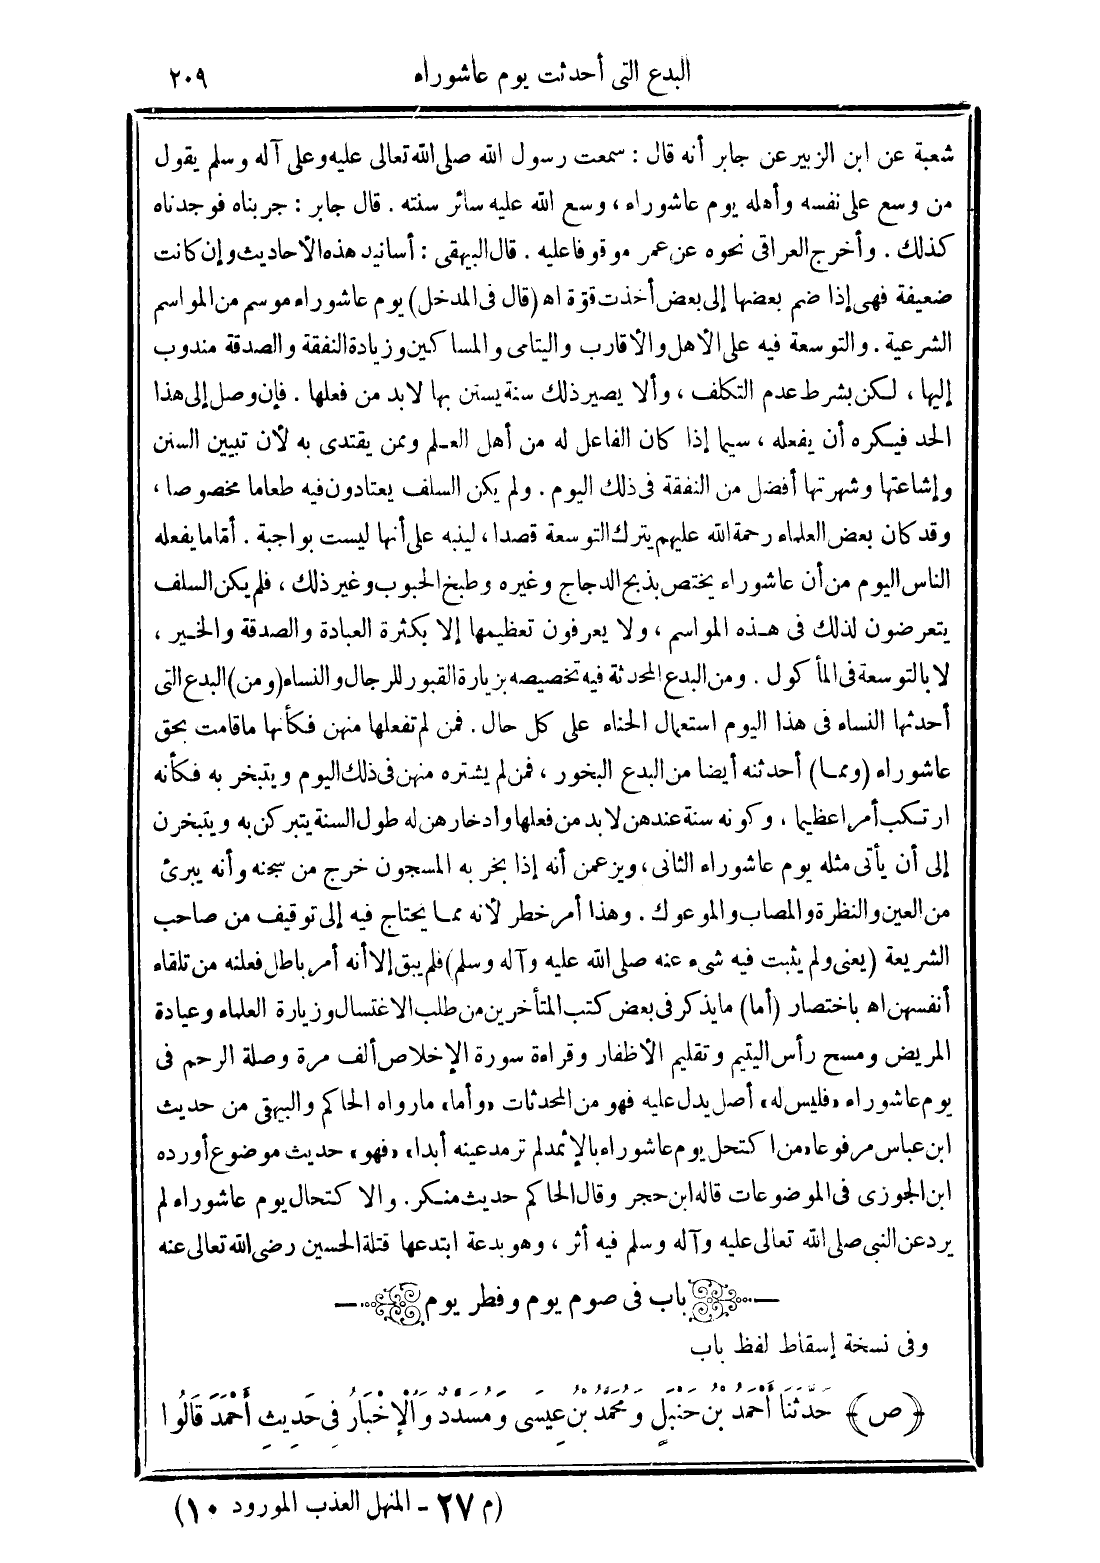 البدع التى أحدثت يوم عاشوراء ٢٠٩
شعبة عن ابن الزبير عن جابر أنه قال : سمعت رسول الله صلى الله تعالى عليه وعلى آله وسلم يقول
من وسع على نفسه وأهله يوم عاشوراء ، وسع الله عليه سائر سنته . قال جابر : جربناه فوجدناه
كذلك . وأخرج العراقى نحوه عن عمر موقوفا عليه . قال البيهقى : أسانيد هذه الأحاديث وإن كانت
ضعيفة فهى إذا ضم بعضها إلى بعض أخذت قوّة اه (قال فى المدخل) يوم عاشوراء موسم من المواسم
الشرعية . والتوسعة فيه على الأهل والأقارب واليتامى والمساكين وزيادة النفقة والصدقة مندوب
إليها ، لكن بشرط عدم التكلف ، وألا يصير ذلك سنة يستن بها لابد من فعلها . فإن وصل إلى هذا
الحد فيكره أن يفعله ، سيما إذا كان الفاعل له من أهل العلم وممن يقتدى به لأن تبيين السنن
وإشاعتها وشهرتها أفضل من النفقة فى ذلك اليوم . ولم يكن السلف يعتادون فيه طعاما مخصوصا ،
وقد كان بعض العلماء رحمة الله عليهم يترك التوسعة قصدا ، لينبه على أنها ليست بواجبة . أمّا ما يفعله
الناس اليوم من أن عاشوراء يختص بذبح الدجاج وغيره وطبخ الحبوب وغير ذلك ، فلم يكن السلف
يتعرضون لذلك فى هذه المواسم ، ولا يعرفون تعظيمها إلا بكثرة العبادة والصدقة والخير ،
لا بالتوسعة فى المأكول . ومن البدع المحدثة فيه تخصيصه بزيارة القبور للرجال والنساء (ومن) البدع التى
أحدثها النساء فى هذا اليوم استعمال الحناء على كل حال . فمن لم تفعلها منهن فكأنها ماقامت بحق
عاشوراء (ومما) أحدثنه أيضا من البدع البخور ، فمن لم يشتره منهن فى ذلك اليوم ويتبخر به فكأنه
ارتكب أمرا عظيما ، وكونه سنة عندهن لابد من فعلها وادخارهن له طول السنة يتبركن به ويتبخرن
إلى أن يأتى مثله يوم عاشوراء الثانى ، ويزعمن أنه إذا بخر به المسجون خرج من سجنه وأنه يبرئ
من العين والنظرة والمصاب والموعوك . وهذا أمر خطر لأنه مما يحتاج فيه إلى توقيف من صاحب
الشريعة (يعنى ولم يثبت فيه شىء عنه صلى الله عليه وآله وسلم) فلم يبق إلا أنه أمر باطل فعلنه من تلقاء
أنفسهن اه باختصار (أما) ما يذكر فى بعض كتب المتأخرين من طلب الاغتسال وزيارة العلماء وعيادة
المريض ومسح رأس اليتيم وتقليم الأظفار وقراءة سورة الإخلاص ألف مرة وصلة الرحم فى
يوم عاشوراء «فليس له» أصل يدل عليه فهو من المحدثات «وأما» مارواه الحاكم والبيهقى من حديث
ابن عباس مرفوعا «من اكتحل يوم عاشوراء بالإثمد لم ترمد عينه أبدا» «فهو» حديث موضوع أورده
ابن الجوزى فى الموضوعات قاله ابن حجر وقال الحاكم حديث منكر. والاكتحال يوم عاشوراء لم
يرد عن النبى صلى الله تعالى عليه وآله وسلم فيه أثر ، وهو بدعة ابتدعها قتلة الحسين رضى الله تعالى عنه
باب فى صوم يوم وفطر يوم
وفى نسخة إسقاط لفظ باب
(ص) حَدَّثَنَا أَحْمَدُ بْنُ حَنْبَلٍ وَمُحَمَّدُ بْنُ عِيسَى وَمُسَدَّدٌ وَالْإِخْبَارُ فِى حَدِيثِ أَحْمَدَ قَالُوا
(م ٢٧ - المنهل العذب المورود ١٠)